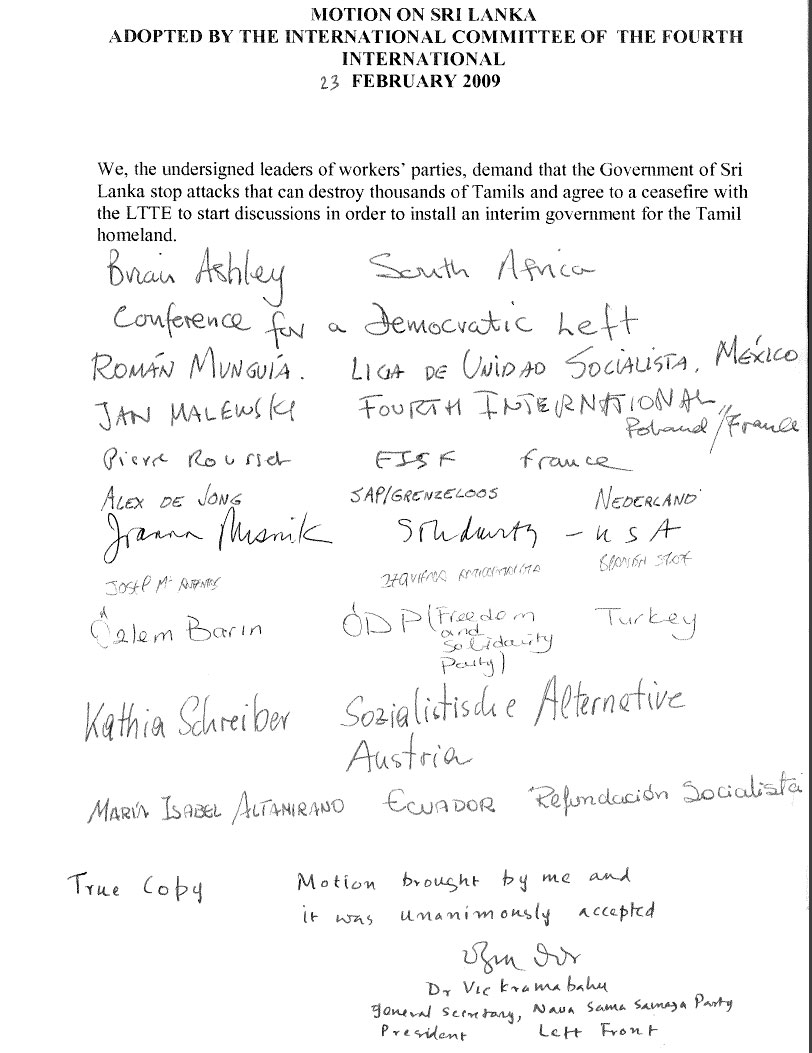 MOTION ON SRI LANKA
ADOPTED BY THE INTERNATIONAL COMMITTEE OF THE FOURTH
INTERNATIONAL
23 FEBRUARY 2009
We, the undersigned leaders of workers' parties, demand that the Government of Sri
Lanka stop attacks that can destroy thousands of Tamils and agree to a ceasefire with
the LTTE to start discussions in order to install an interim government for the Tamil
homeland.
Brian Ashley South Africa
Conference for a Democratic Left
ROMÁN MUNGUÍA. LIGA DE UNIDAD SOCIALISTA, MÉXICO
JAN MALEWSKI FOURTH INTERNATIONAL,
Poland/France
Pierre Rousset France
ALEX DE JONG SAP/GRENZELOOS NEDERLAND
Joanna Misnik Solidarity - USA
JOSEP Mª
Özlem Barin ÖDP (Freedom Turkey
and
Solidarity
Party)
Kathia Schreiber Sozialistische Alternative
Austria
MARÍA ISABEL ALTAMIRANO ECUADOR Refundación Socialista
True Copy Motion brought by me and
it was unanimously accepted
Dr Vickramabahu
general secretary, Nava Sama Samaja Party
President Left Front